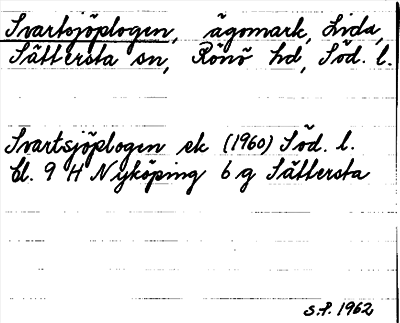 Svartsjöplogen, ägomark, Lida,
Sättersta sn, Rönö hd, Söd. l.
Svartsjöplogen ek (1960) Söd. l.
bl. 9 H Nyköping 6 g Sättersta
S.P. 1962